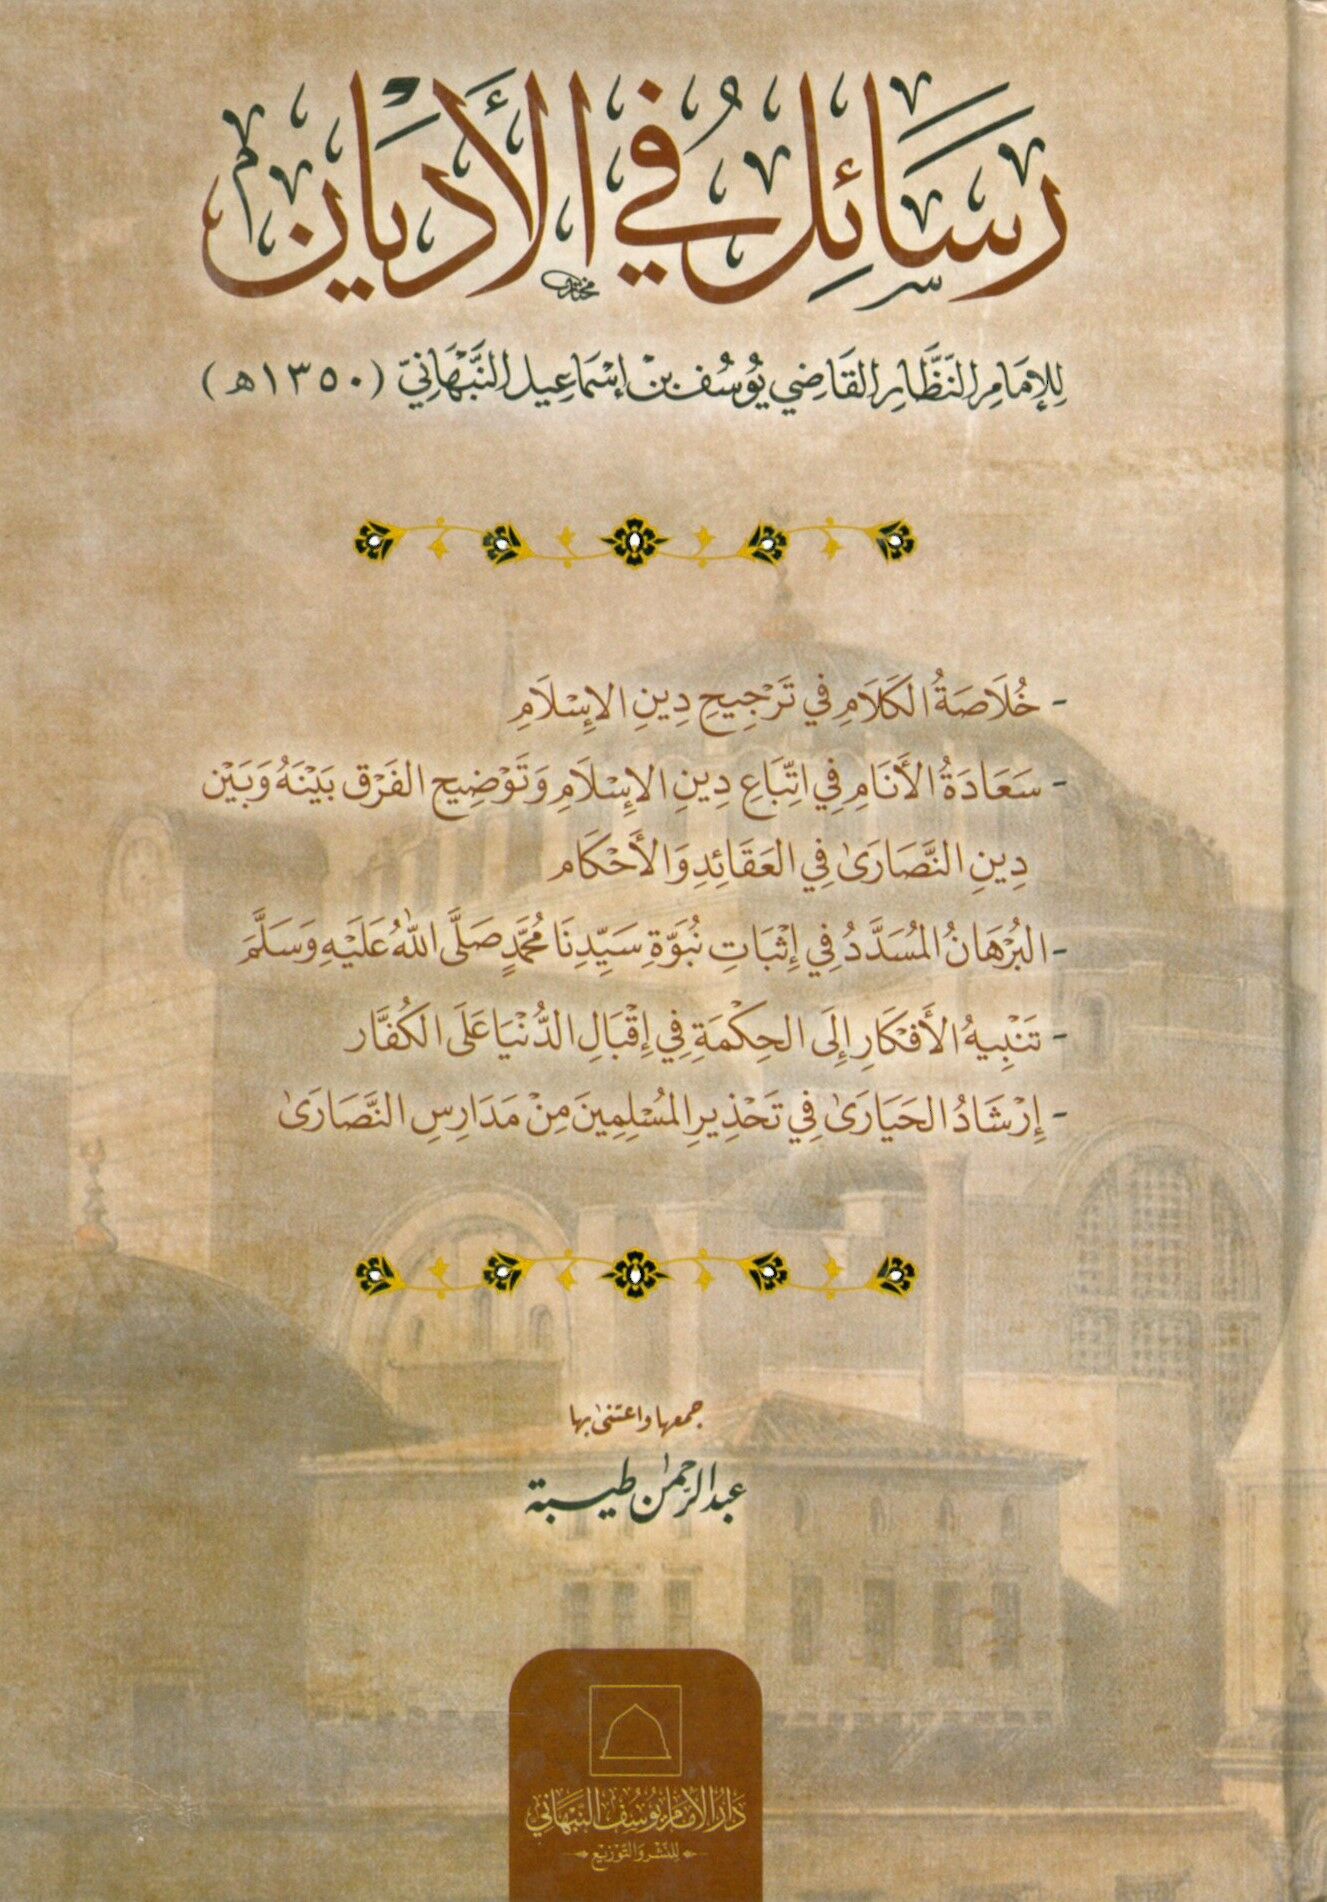 رَسَائِلُ فِي الأَدْيَانِ
مختار
لِلإِمَامِ النَّظَّارِ القَاضِي يُوسُف بن إِسْمَاعِيل النَّبْهَانِيّ (١٣٥٠هـ)
- خُلَاصَةُ الكَلَامِ فِي تَرْجِيحِ دِينِ الإِسْلَامِ
- سَعَادَةُ الأَنَامِ فِي اتِّبَاعِ دِينِ الإِسْلَامِ وَتَوْضِيحِ الفَرْقِ بَيْنَهُ وَبَيْنَ
دِينِ النَّصَارَىٰ فِي العَقَائِدِ وَالأَحْكَام
- البُرْهَانُ المُسَدَّدُ فِي إِثْبَاتِ نُبُوَّةِ سَيِّدِنَا مُحَمَّدٍ صَلَّى اللهُ عَلَيْهِ وَسَلَّمَ
- تَنْبِيهُ الأَفْكَارِ إِلَى الحِكْمَةِ فِي إِقْبَالِ الدُّنْيَا عَلَى الكُفَّار
- إِرْشَادُ الحَيَارَىٰ فِي تَحْذِيرِ المُسْلِمِينَ مِنْ مَدَارِسِ النَّصَارَىٰ
جمعها واعتنى بها
عبد الرحمٰن طيبة
دَارُ الإِمَامِ يُوسُف النَّبْهَانِي
لِلنَّشْرِ وَالتَّوْزِيْعِ